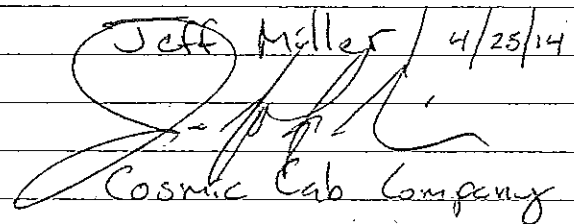 Jeff Miller / 4/25/14
Cosmic Cab Company